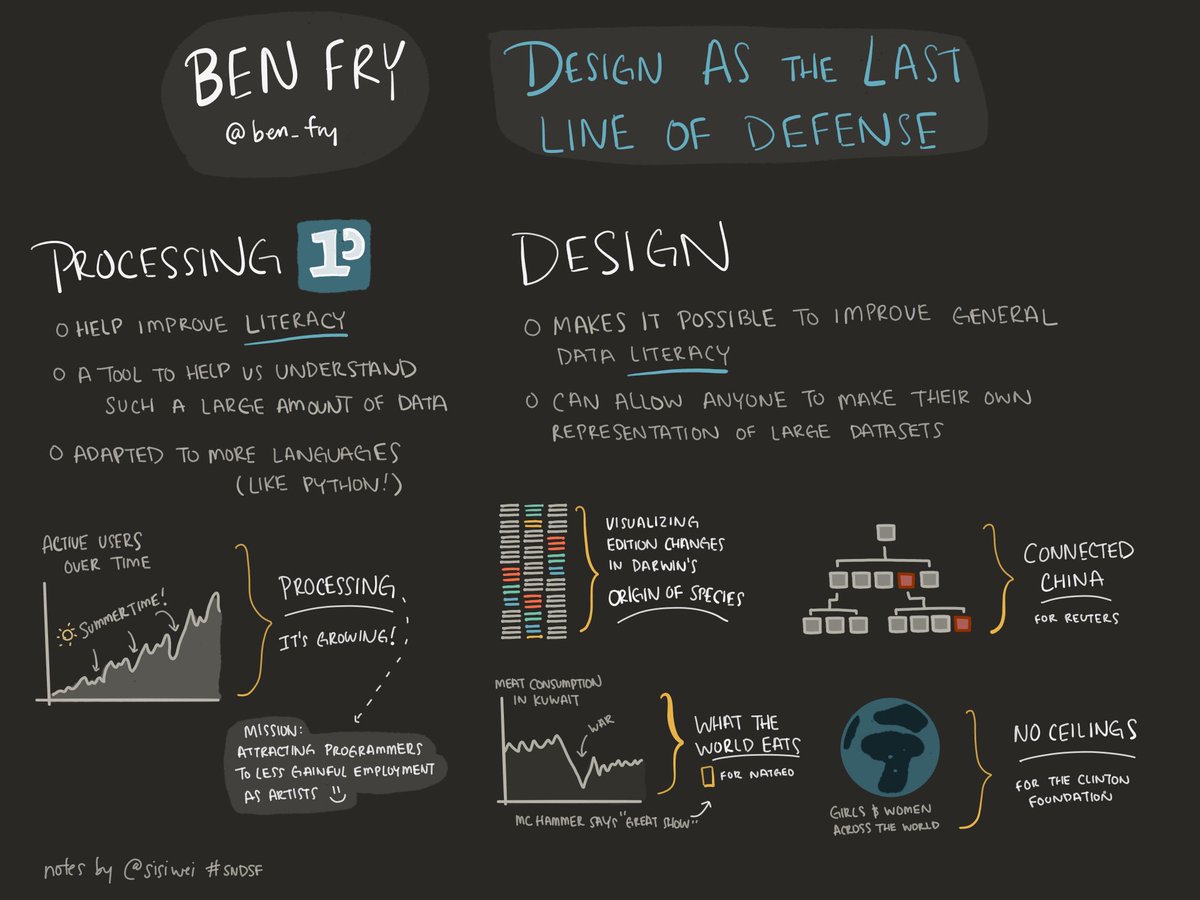 BEN FRY
@ben_fry
DESIGN AS THE LAST
LINE OF DEFENSE
PROCESSING
HELP IMPROVE LITERACY
A TOOL TO HELP US UNDERSTAND
SUCH A LARGE AMOUNT OF DATA
ADAPTED TO MORE LANGUAGES
(LIKE PYTHON!)
ACTIVE USERS
OVER TIME
SUMMERTIME!
PROCESSING
IT'S GROWING!
MISSION:
ATTRACTING PROGRAMMERS
TO LESS GAINFUL EMPLOYMENT
AS ARTISTS
DESIGN
MAKES IT POSSIBLE TO IMPROVE GENERAL
DATA LITERACY
CAN ALLOW ANYONE TO MAKE THEIR OWN
REPRESENTATION OF LARGE DATASETS
VISUALIZING
EDITION CHANGES
IN DARWIN'S
ORIGIN OF SPECIES
CONNECTED
CHINA
FOR REUTERS
MEAT CONSUMPTION
IN KUWAIT
WAR
WHAT THE
WORLD EATS
FOR NATGEO
MC HAMMER SAYS "GREAT SHOW"
GIRLS & WOMEN
ACROSS THE WORLD
NO CEILINGS
FOR THE CLINTON
FOUNDATION
notes by @sisiwei #SNDSF